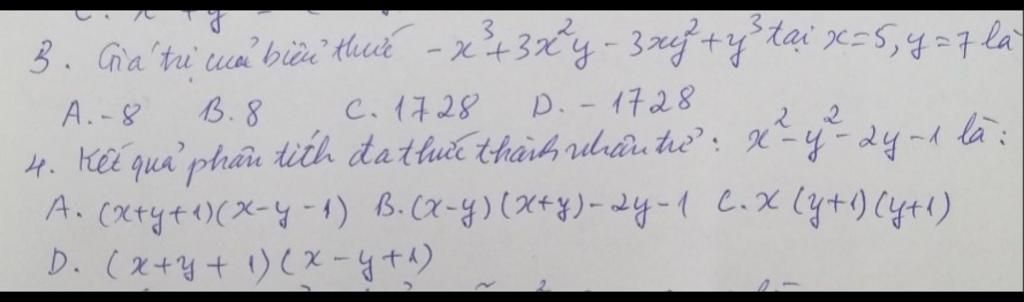 C. x + y
3. Giá trị của biểu thức -x³+3x²y-3xy²+y³ tại x=5, y=7 là
A. -8 B. 8 C. 1728 D. -1728
4. Kết quả phân tích đa thức thành nhân tử: x²-y²-2y-1 là:
A. (x+y+1)(x-y-1) B. (x-y)(x+y)-2y-1 C. x(y+1)(y+1)
D. (x+y+1)(x-y+1)